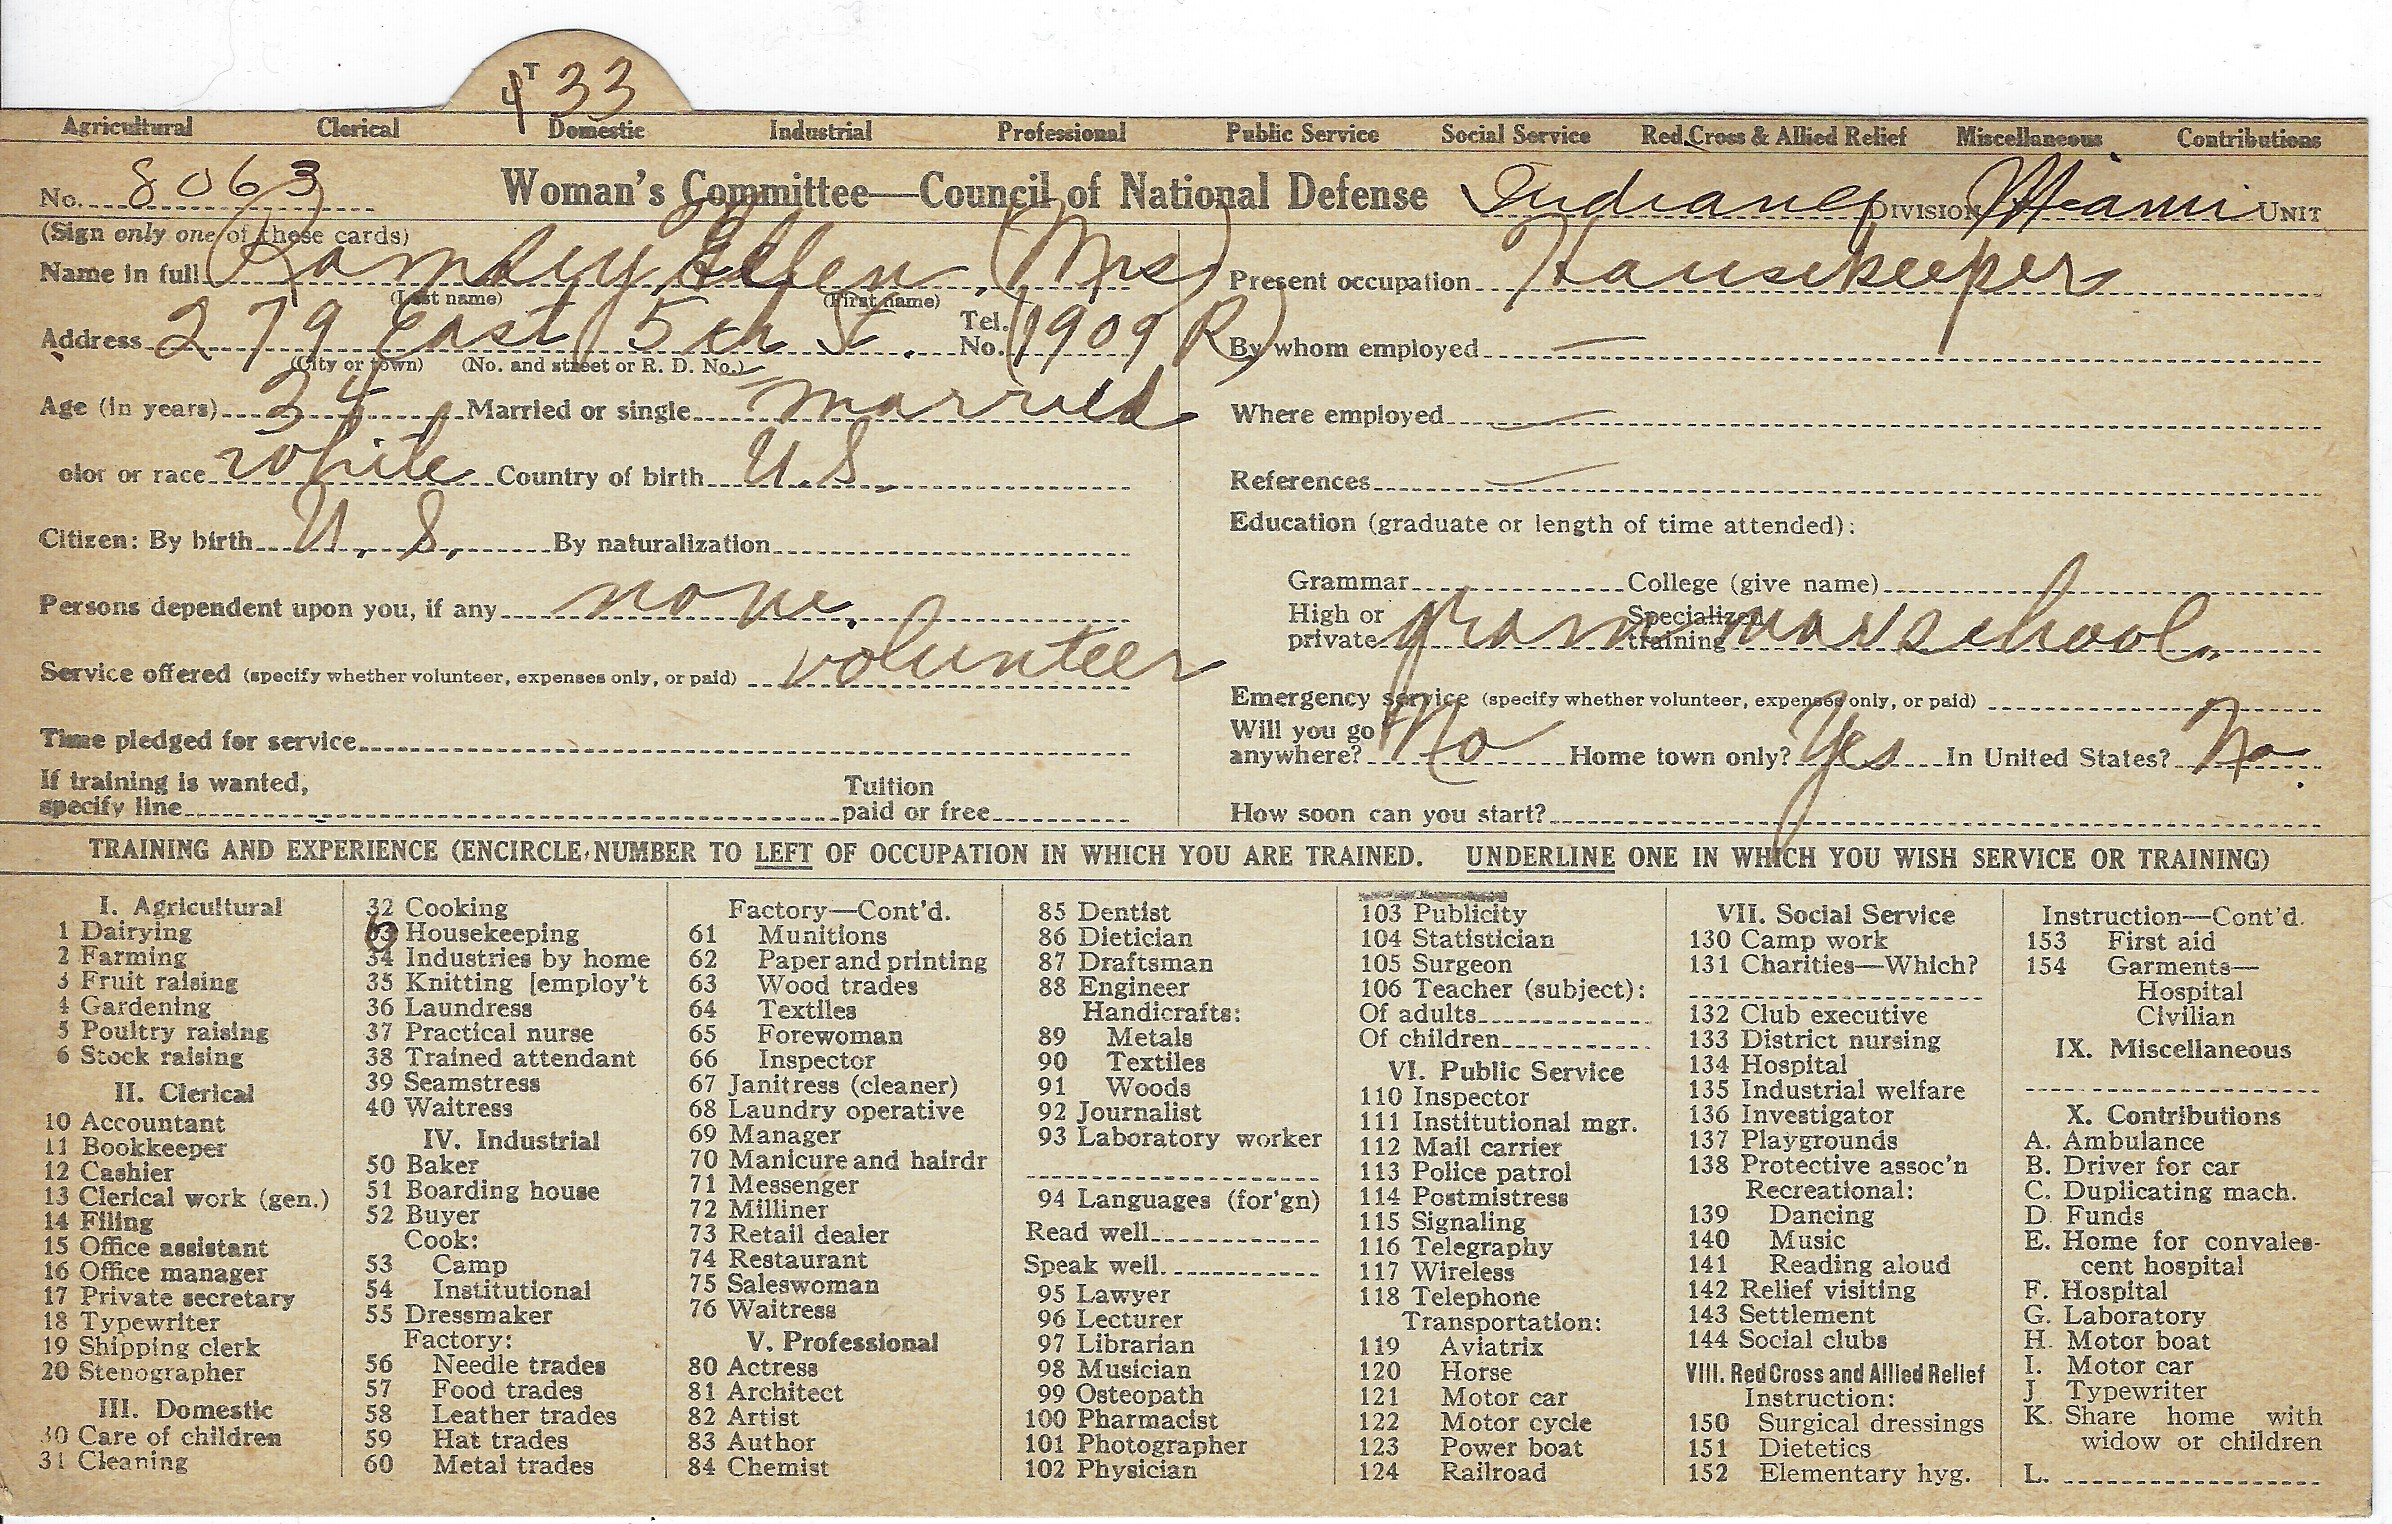 T 33
Agricultural Clerical Domestic Industrial Professional Public Service Social Service Red Cross & Allied Relief Miscellaneous Contributions
No. 8063 Woman's Committee—Council of National Defense Indiana DIVISION Miami UNIT
(Sign only one of these cards)
Name in full Ramsey Ellen, (Mrs)
(Last name) (First name)
Address 279 East 5th St. Tel. No. (1909 R)
(City or town) (No. and street or R. D. No.)
Age (in years) 34 Married or single married
olor or race white Country of birth U.S.
Citizen: By birth U.S. By naturalization
Persons dependent upon you, if any none.
Service offered (specify whether volunteer, expenses only, or paid) volunteer
Time pledged for service
If training is wanted,
specify line Tuition paid or free
Present occupation Housekeeper
By whom employed —
Where employed —
References —
Education (graduate or length of time attended):
Grammar College (give name)
High or private Specialized training grammar school.
Emergency service (specify whether volunteer, expenses only, or paid)
Will you go anywhere? No Home town only? Yes In United States? No.
How soon can you start?
TRAINING AND EXPERIENCE (ENCIRCLE NUMBER TO LEFT OF OCCUPATION IN WHICH YOU ARE TRAINED. UNDERLINE ONE IN WHICH YOU WISH SERVICE OR TRAINING)
I. Agricultural
1 Dairying
2 Farming
3 Fruit raising
4 Gardening
5 Poultry raising
6 Stock raising
II. Clerical
10 Accountant
11 Bookkeeper
12 Cashier
13 Clerical work (gen.)
14 Filing
15 Office assistant
16 Office manager
17 Private secretary
18 Typewriter
19 Shipping clerk
20 Stenographer
III. Domestic
30 Care of children
31 Cleaning
32 Cooking
33 Housekeeping
34 Industries by home
35 Knitting [employ't
36 Laundress
37 Practical nurse
38 Trained attendant
39 Seamstress
40 Waitress
IV. Industrial
50 Baker
51 Boarding house
52 Buyer
Cook:
53 Camp
54 Institutional
55 Dressmaker
Factory:
56 Needle trades
57 Food trades
58 Leather trades
59 Hat trades
60 Metal trades
Factory—Cont'd.
61 Munitions
62 Paper and printing
63 Wood trades
64 Textiles
65 Forewoman
66 Inspector
67 Janitress (cleaner)
68 Laundry operative
69 Manager
70 Manicure and hairdr
71 Messenger
72 Milliner
73 Retail dealer
74 Restaurant
75 Saleswoman
76 Waitress
V. Professional
80 Actress
81 Architect
82 Artist
83 Author
84 Chemist
85 Dentist
86 Dietician
87 Draftsman
88 Engineer
Handicrafts:
89 Metals
90 Textiles
91 Woods
92 Journalist
93 Laboratory worker
94 Languages (for'gn)
Read well
Speak well
95 Lawyer
96 Lecturer
97 Librarian
98 Musician
99 Osteopath
100 Pharmacist
101 Photographer
102 Physician
103 Publicity
104 Statistician
105 Surgeon
106 Teacher (subject):
Of adults
Of children
VI. Public Service
110 Inspector
111 Institutional mgr.
112 Mail carrier
113 Police patrol
114 Postmistress
115 Signaling
116 Telegraphy
117 Wireless
118 Telephone
Transportation:
119 Aviatrix
120 Horse
121 Motor car
122 Motor cycle
123 Power boat
124 Railroad
VII. Social Service
130 Camp work
131 Charities—Which?
132 Club executive
133 District nursing
134 Hospital
135 Industrial welfare
136 Investigator
137 Playgrounds
138 Protective assoc'n
Recreational:
139 Dancing
140 Music
141 Reading aloud
142 Relief visiting
143 Settlement
144 Social clubs
VIII. Red Cross and Allied Relief
Instruction:
150 Surgical dressings
151 Dietetics
152 Elementary hyg.
Instruction—Cont'd.
153 First aid
154 Garments—
Hospital
Civilian
IX. Miscellaneous
X. Contributions
A. Ambulance
B. Driver for car
C. Duplicating mach.
D. Funds
E. Home for convales-
cent hospital
F. Hospital
G. Laboratory
H. Motor boat
I. Motor car
J. Typewriter
K. Share home with
widow or children
L.